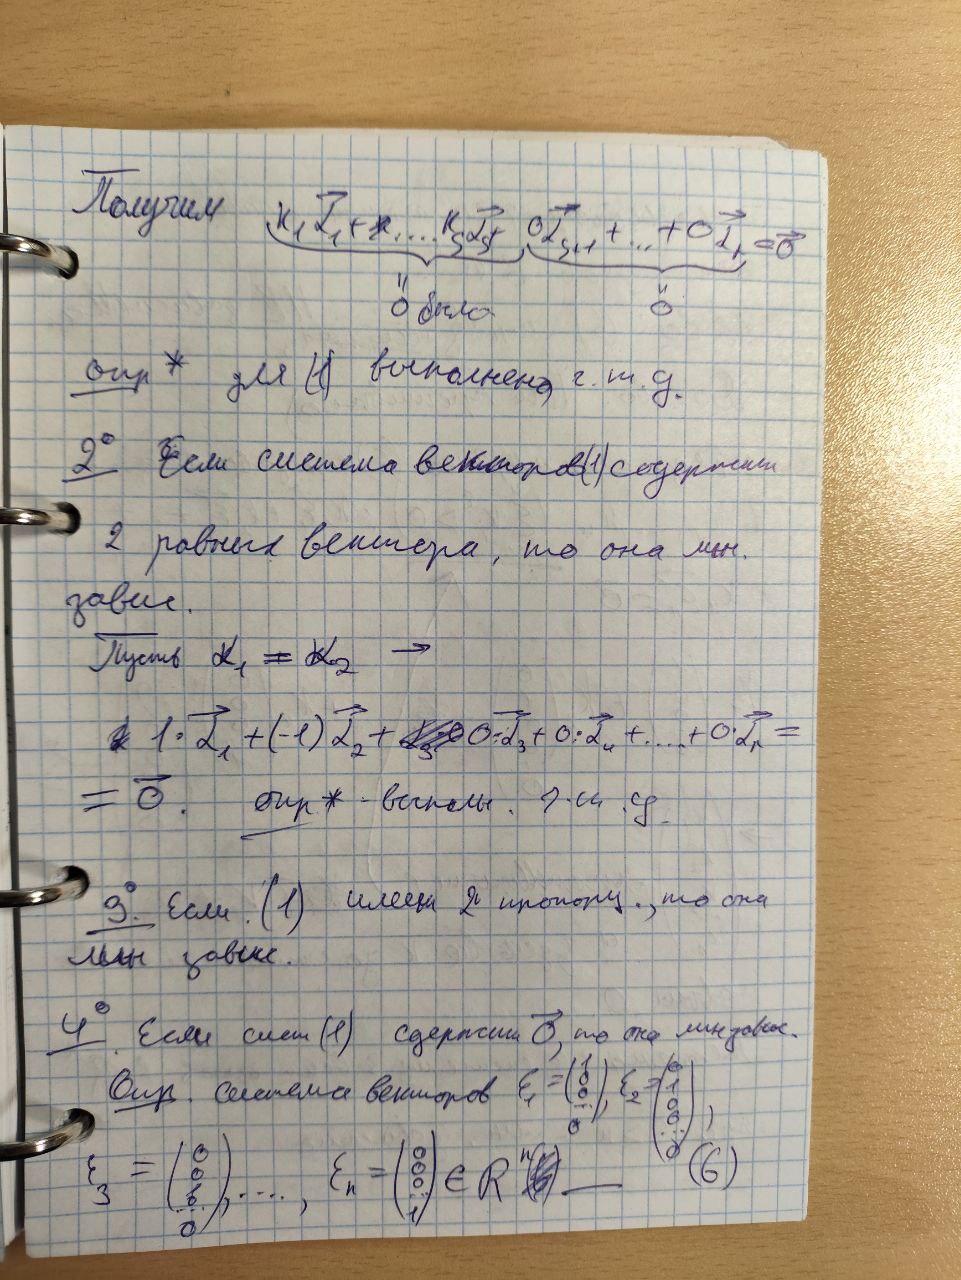 Получим k₁α⃗₁ + .... kₛα⃗ₛ + 0α⃗ₛ₊₁ + ... + 0α⃗ᵣ = 0⃗
0 было 0
опр * для (1) выполнено, ч.т.д.
2° Если система векторов (1) содержит
2 равных вектора, то она лин.
завис.
Пусть α₁ = α₂ →
1·α⃗₁ + (-1)α⃗₂ + 0·α⃗₃ + 0·α⃗₄ + ..... + 0·α⃗ᵣ =
= 0⃗. опр * - выполн. ч.т.д.
3°. Если (1) имеет 2 пропорц., то она
лин завис.
4°. Если сист (1) сдержит 0⃗, то она лин завис.
Опр. система векторов ε₁ = (1 0 0 ... 0), ε₂ = (0 1 0 0 ... 0),
ε₃ = (0 0 1 ... 0), ...., εₙ = (0 0 0 ... 1) ∈ Rⁿ — (6)